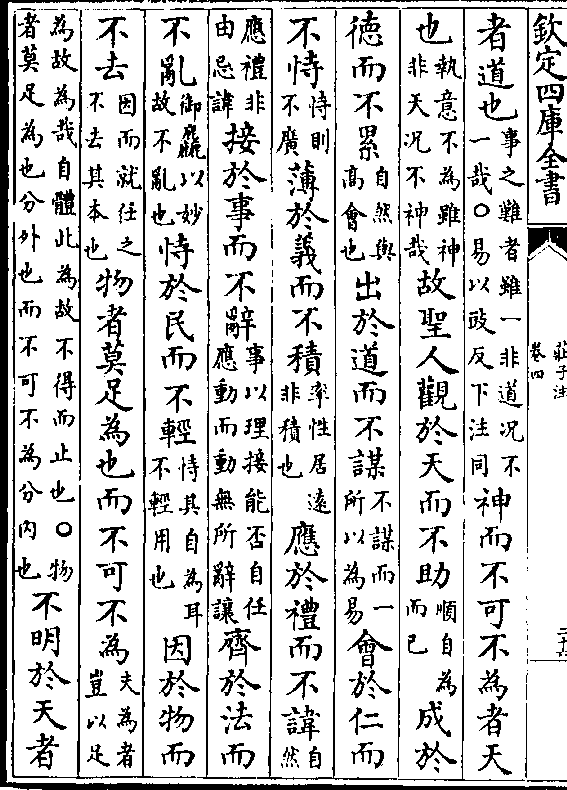 欽定四庫全書
莊子注
卷四
二十六
者道也事之難者雖一非道況不一哉○易以豉反下注同神而不可不為者天
也執意不為雖神非天況不神哉故聖人觀於天而不助順自為而已成於
德而不累自然與高會也出於道而不謀不謀而一所以為易會於仁而
不恃恃則不廣薄於義而不積率性居遠非積也應於禮而不諱自然
應禮非由忌諱接於事而不辭事以理接能否自任應動而動無所辭讓齊於法而
不亂御麤以妙故不亂也恃於民而不輕恃其自為耳不輕用也因於物而
不去因而就任之不去其本也物者莫足為也而不可不為夫為者豈以足
為故為哉自體此為故不得而止也○物者莫足為也分外也而不可不為分內也不明於天者